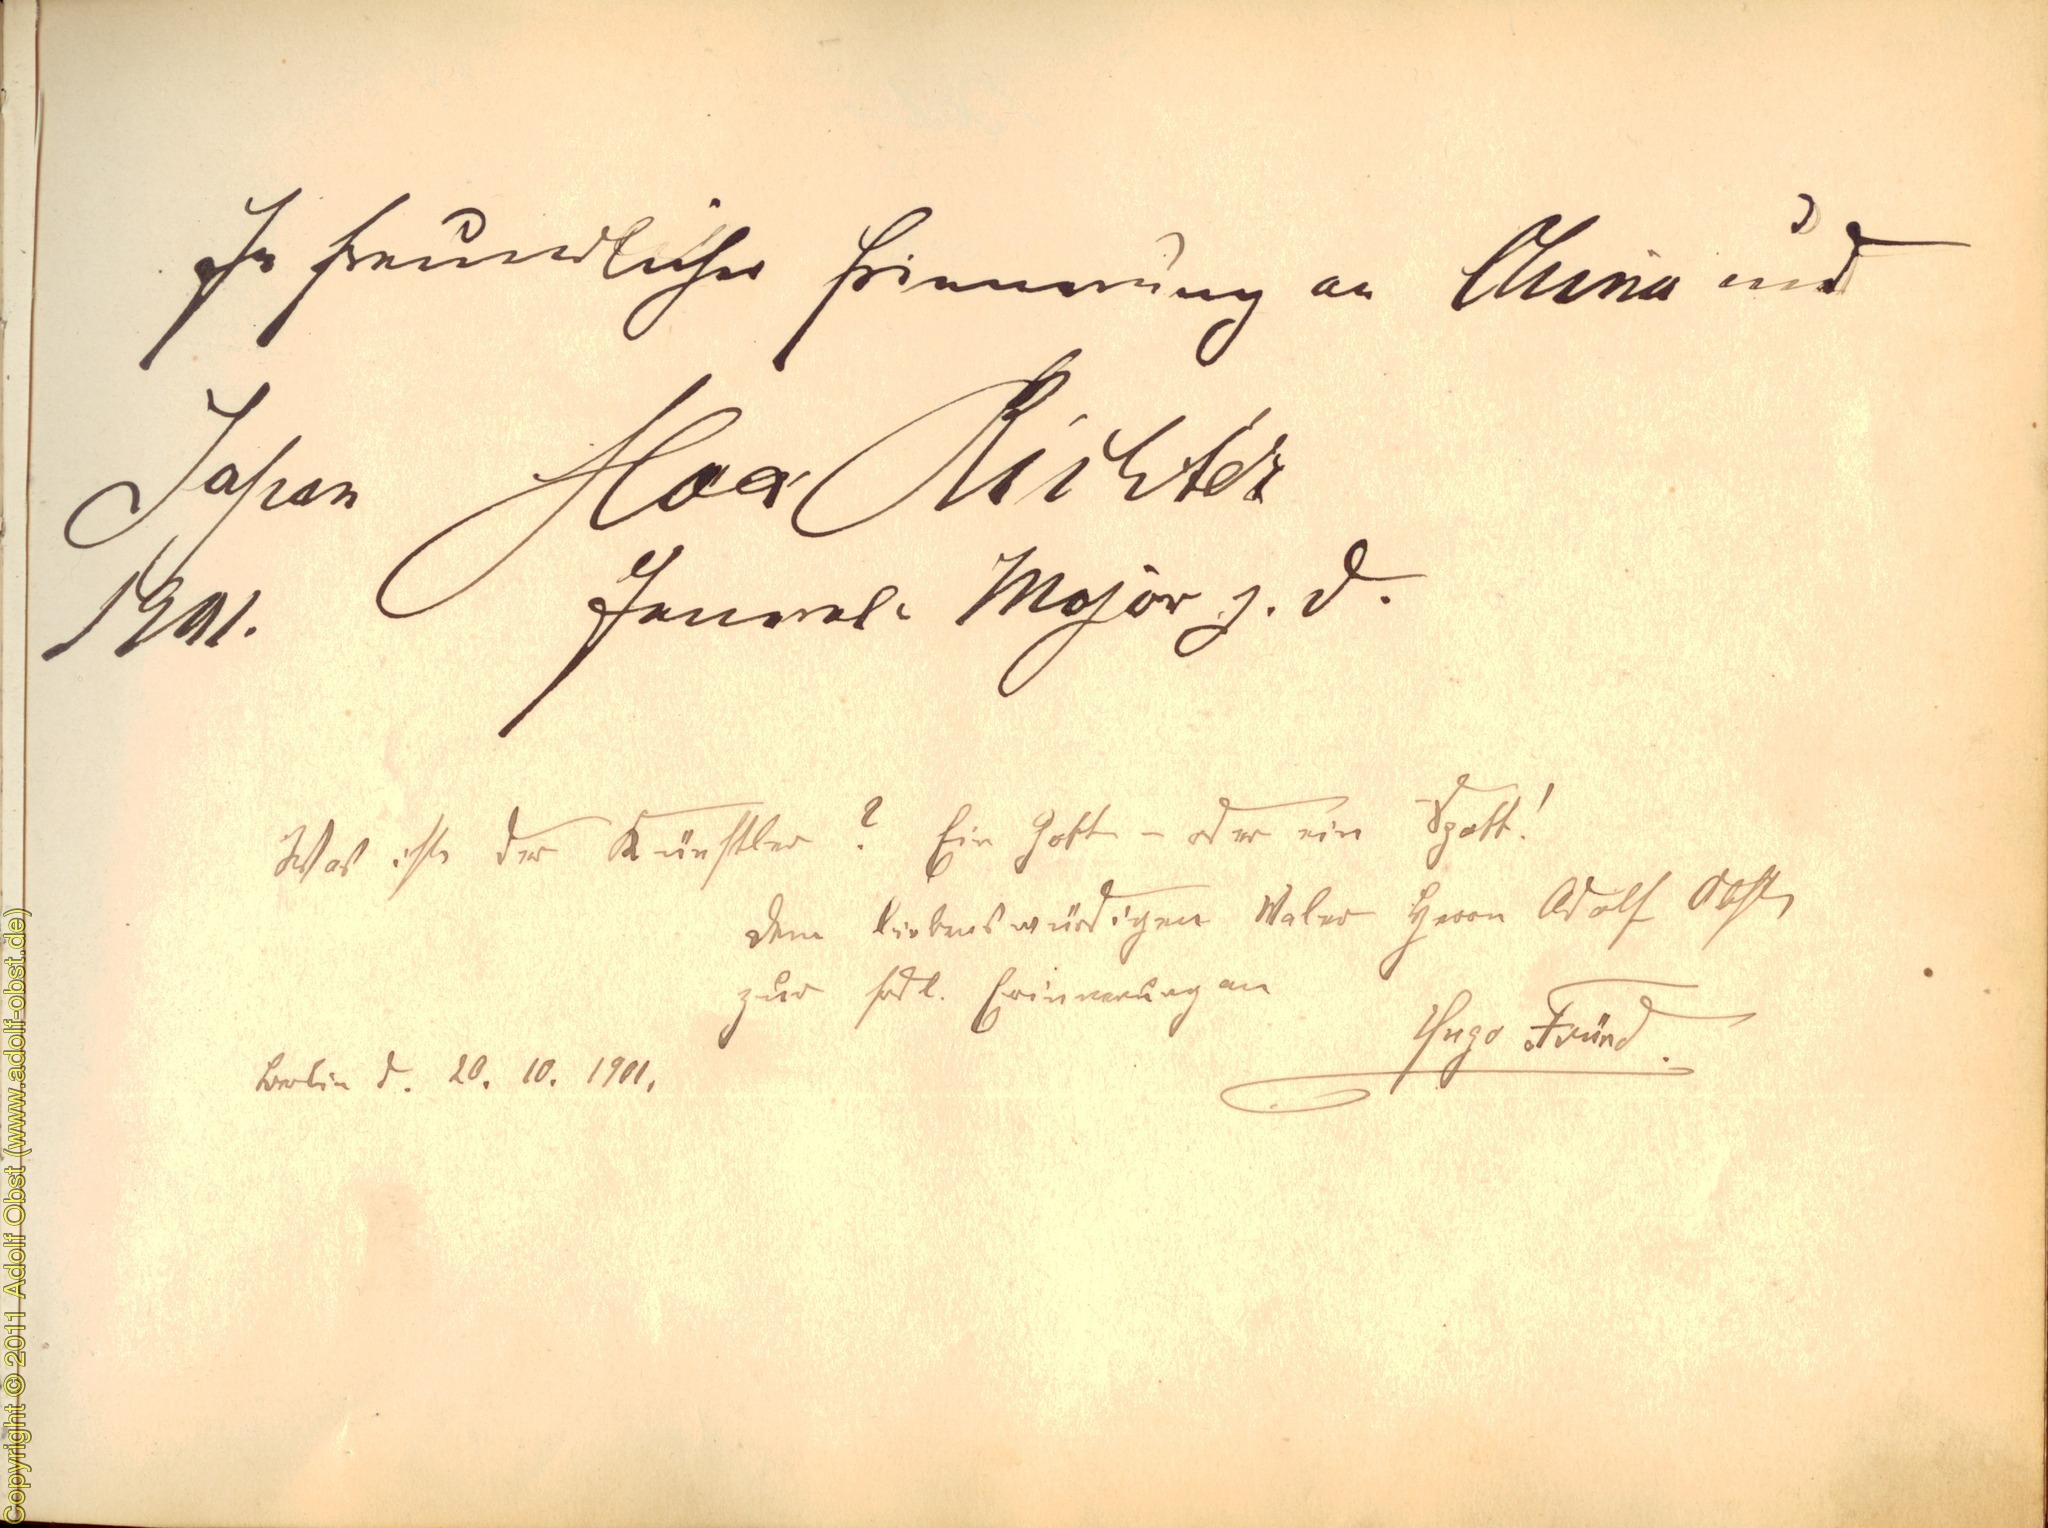 In freundlicher Erinnerung an China und
Japan Max Richter
1901. General-Major z. D.
Was ist der Künstler? Ein Gott – oder ein Spott!
Dem liebenswürdigen Maler Herrn Adolf Obst
zur frdl. Erinnerung an
Hugo Fründ.
Berlin d. 20. 10. 1901.
Copyright © 2011 Adolf Obst (www.adolf-obst.de)